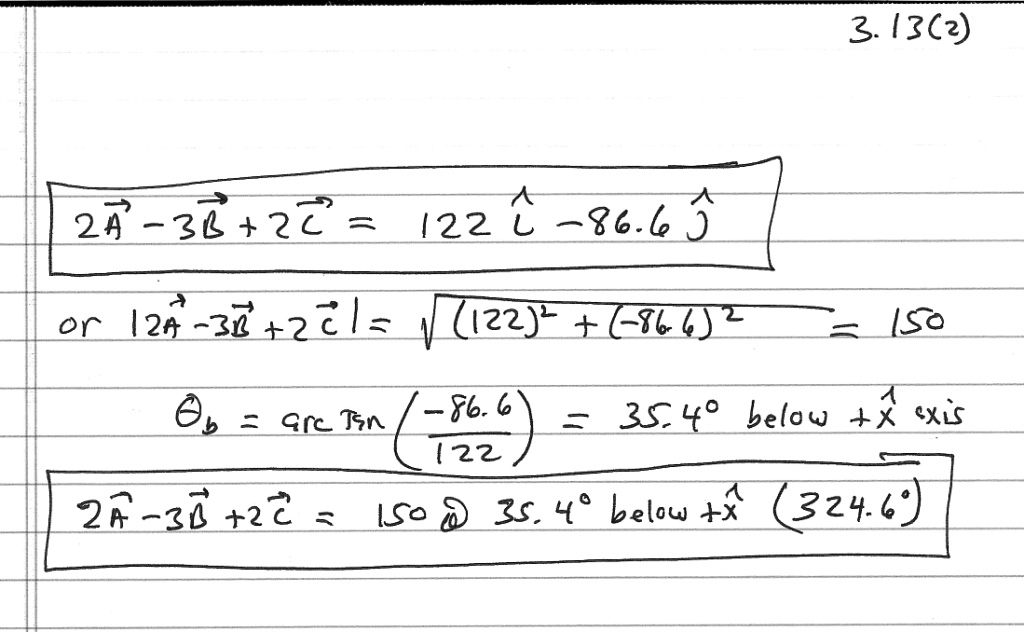 3.13(2)
2A⃗ - 3B⃗ + 2C⃗ = 122 î - 86.6 ĵ
or |2A⃗ - 3B⃗ + 2C⃗| = √((122)² + (-86.6)²) = 150
θb = arc Tan (-86.6/122) = 35.4° below + x̂ axis
2A⃗ - 3B⃗ + 2C⃗ = 150 @ 35.4° below + x̂ (324.6°)